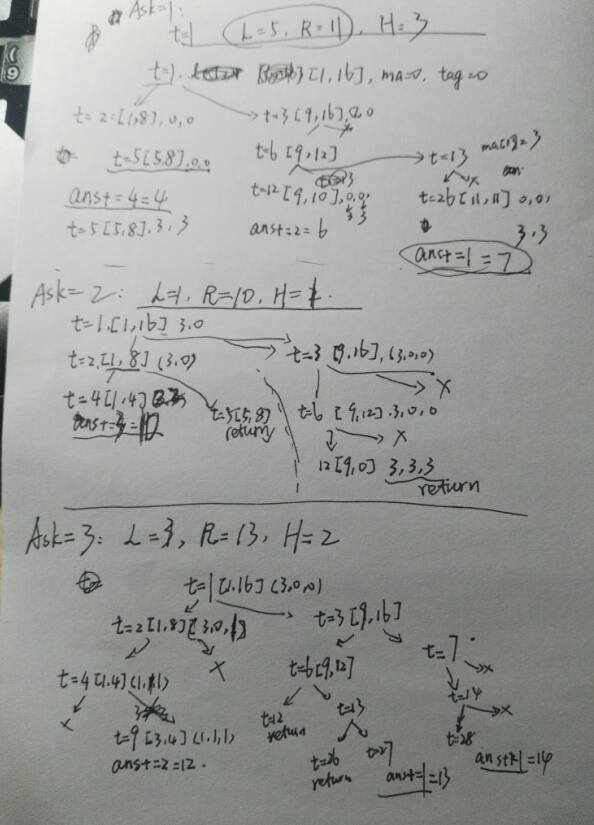 Ask=1:
t=1 L=5, R=11, H=3
t=1. [1,16], ma=0, tag=0
t=2:[1,8],0,0 t=3[9,16],0,0
t=5[5,8],0,0 t=6[9,12] t=13 ma[13]=3
ans+=4=4 t=12[9,10],0,0, t=26[11,11]0,0,
t=5[5,8],3,3 3 3
ans+=2=6 3,3
ans+=1=7
Ask=2: L=1, R=10, H=1.
t=1.[1,16] 3,0
t=2.[1,8](3,0) t=3 [9,16],(3,0,0)
x
t=4[1,4] t=5[5,8] t=6 [9,12].3,0,0
return x
12[9,0] 3,3,3
return
Ask=3: L=3, R=13, H=2
t=1[1,16](3,0,0)
t=2[1,8] t=3[9,16]
t=4[1,4] x t=6[9,12] t=7 x
x t=12 t=13 t=14 x
return
t=9[3,4](1,1,1) t=26 t=27 t=28
ans+=2=12. return ans+=1=13 =14